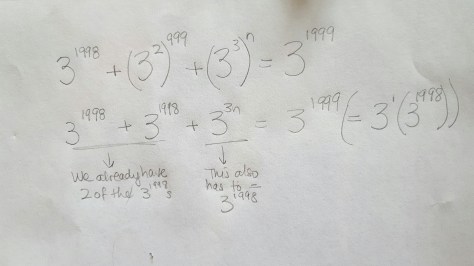 3^1998 + (3^2)^999 + (3^3)^n = 3^1999
3^1998 + 3^1998 + 3^3n = 3^1999 (= 3^1 (3^1998))
We already have
2 of the 3^1998 s
This also
has to =
3^1998